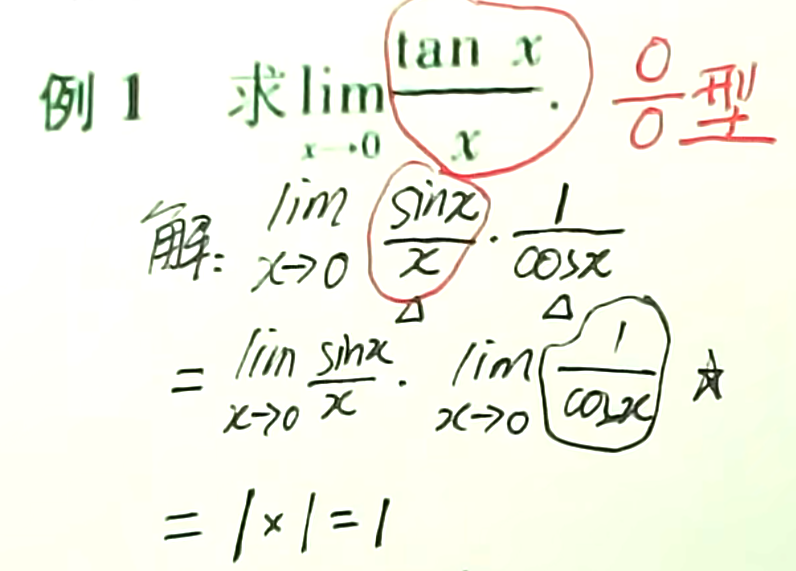 例 1 求 lim x→0 tan x / x . 0/0 型
解: lim x→0 sinx/x · 1/cosx
= lim x→0 sinx/x · lim x→0 1/cosx ☆
= 1×1=1